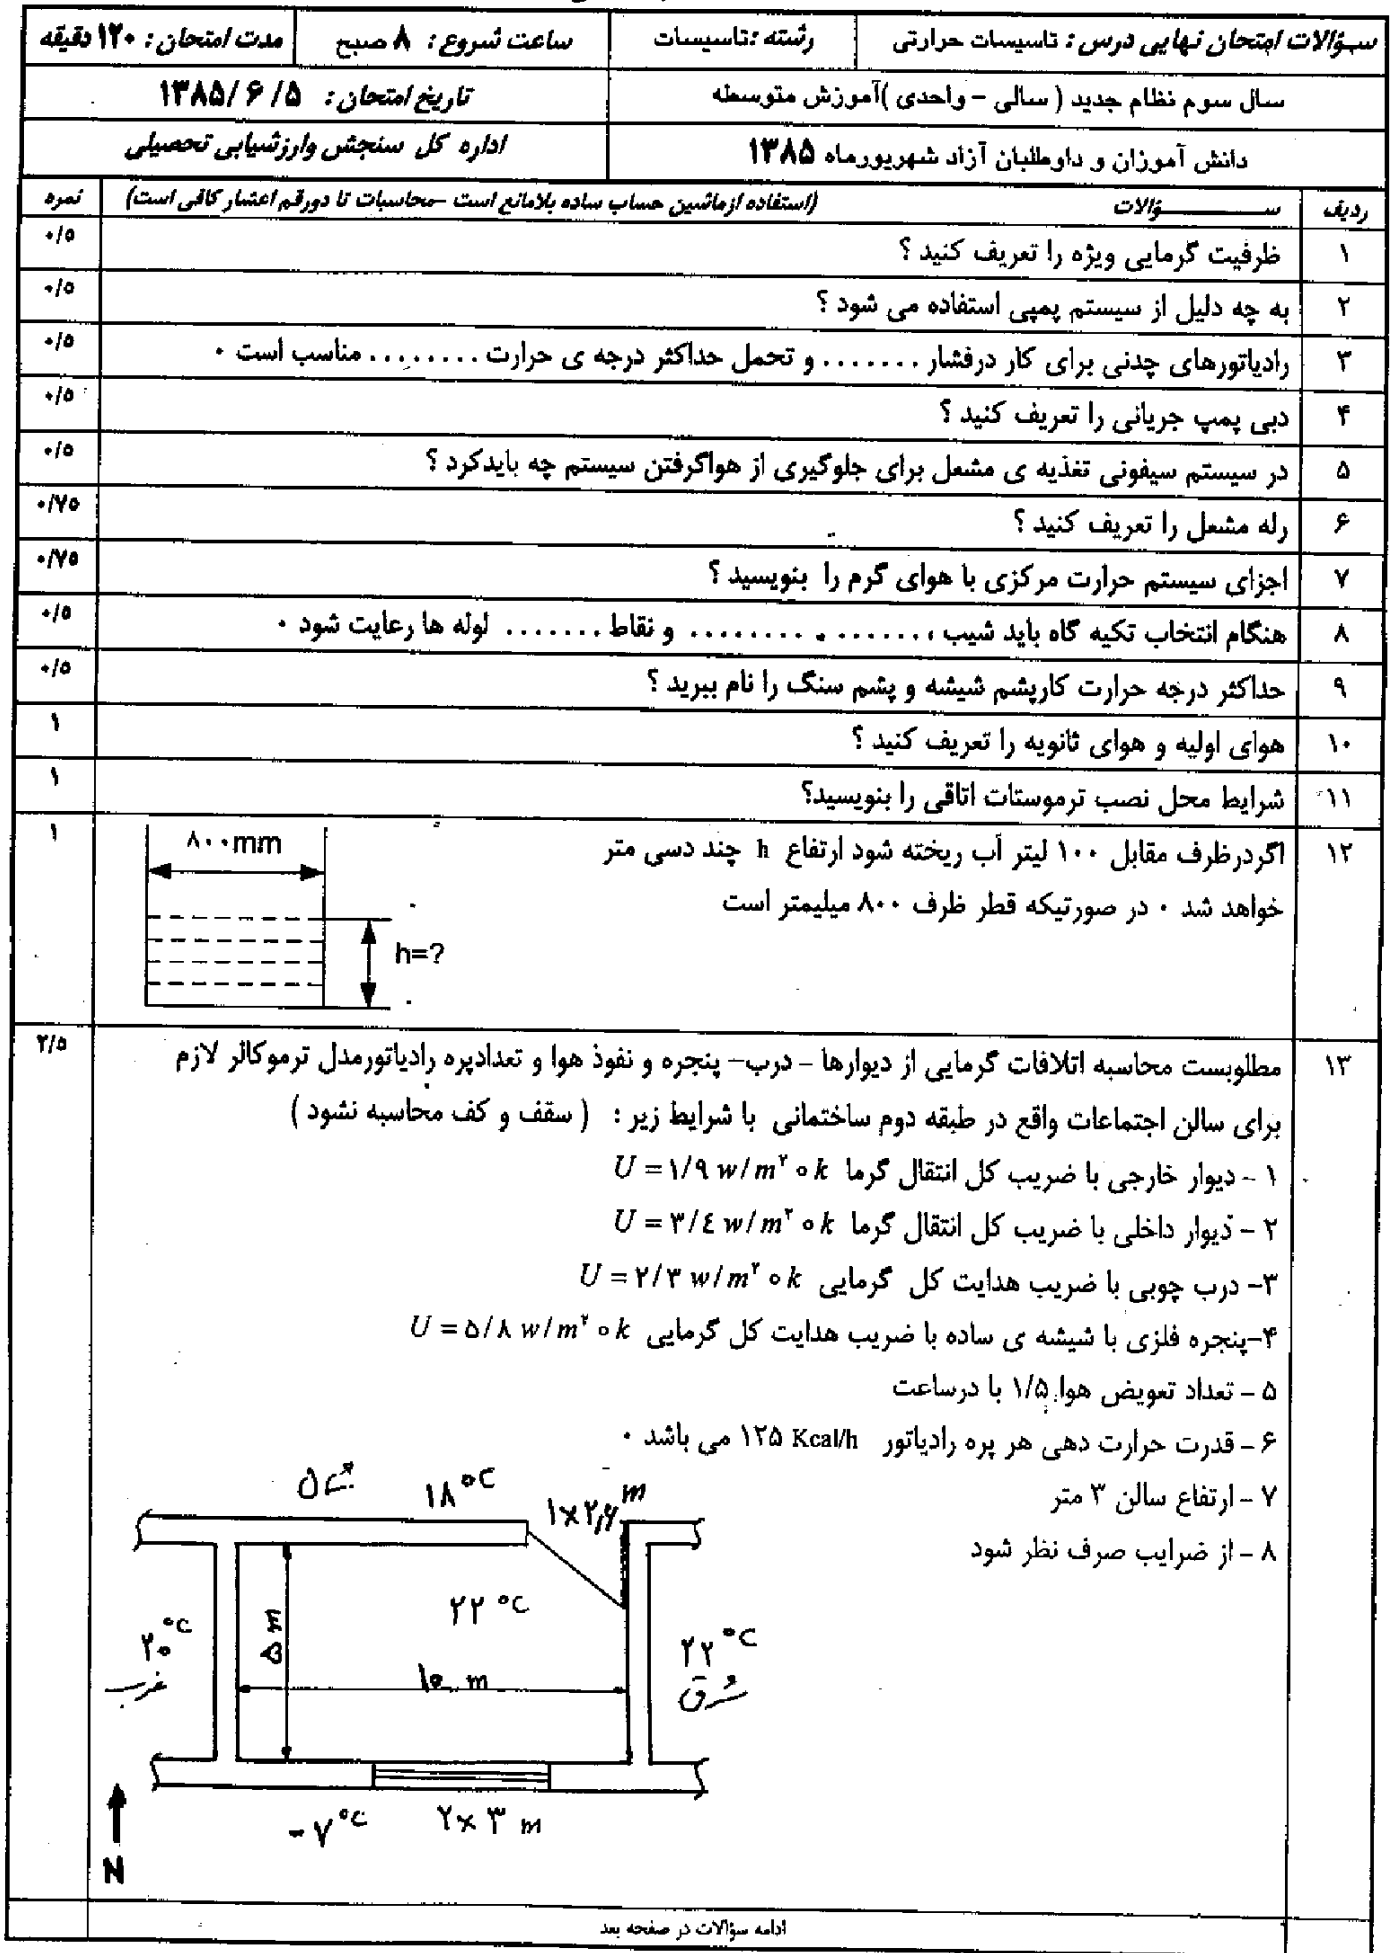 سؤالات امتحان نهایی درس : تاسیسات حرارتی	رشته :تاسیسات	ساعت شروع : ۸ صبح	مدت امتحان : ۱۲۰ دقیقه
سال سوم نظام جدید ( سالی – واحدی )آموزش متوسطه	تاریخ امتحان : ۵ /۶ /۱۳۸۵
دانش آموزان و داوطلبان آزاد شهریورماه ۱۳۸۵	اداره کل سنجش وارزشیابی تحصیلی
ردیف	ســـــــؤالات	(استفاده ازماشین حساب ساده بلامانع است –محاسبات تا دورقم اعشار کافی است)	نمره
۱	ظرفیت گرمایی ویژه را تعریف کنید ؟	۰/۵
۲	به چه دلیل از سیستم پمپی استفاده می شود ؟	۰/۵
۳	رادیاتورهای چدنی برای کار درفشار ........ و تحمل حداکثر درجه ی حرارت ........ مناسب است ۰	۰/۵
۴	دبی پمپ جریانی را تعریف کنید ؟	۰/۵
۵	در سیستم سیفونی تغذیه ی مشعل برای جلوگیری از هواگرفتن سیستم چه بایدکرد ؟	۰/۵
۶	رله مشعل را تعریف کنید ؟	۰/۷۵
۷	اجزای سیستم حرارت مرکزی با هوای گرم را بنویسید ؟	۰/۷۵
۸	هنگام انتخاب تکیه گاه باید شیب ، ....... ، ......... و نقاط ....... لوله ها رعایت شود ۰	۰/۵
۹	حداکثر درجه حرارت کارپشم شیشه و پشم سنگ را نام ببرید ؟	۰/۵
۱۰	هوای اولیه و هوای ثانویه را تعریف کنید ؟	۱
۱۱	شرایط محل نصب ترموستات اتاقی را بنویسید؟	۱
۱۲	اگردرظرف مقابل ۱۰۰ لیتر آب ریخته شود ارتفاع h چند دسی متر	۱
خواهد شد ۰ در صورتیکه قطر ظرف ۸۰۰ میلیمتر است
۸۰۰mm
h=?
۱۳	مطلوبست محاسبه اتلافات گرمایی از دیوارها – درب– پنجره و نفوذ هوا و تعدادپره رادیاتورمدل ترموکالر لازم	۲/۵
برای سالن اجتماعات واقع در طبقه دوم ساختمانی با شرایط زیر : ( سقف و کف محاسبه نشود )
۱ – دیوار خارجی با ضریب کل انتقال گرما U = ۱/۹ w/m۲ ∘ k
۲ – دیوار داخلی با ضریب کل انتقال گرما U = ۳/٤ w/m۲ ∘ k
۳– درب چوبی با ضریب هدایت کل گرمایی U = ۲/۳ w/m۲ ∘ k
۴–پنجره فلزی با شیشه ی ساده با ضریب هدایت کل گرمایی U = ۵/۸ w/m۲ ∘ k
۵ – تعداد تعویض هوا ۱/۵ با درساعت
۶ – قدرت حرارت دهی هر پره رادیاتور ۱۲۵ Kcal/h می باشد ۰
۷ – ارتفاع سالن ۳ متر
۸ – از ضرایب صرف نظر شود
شمال	۱۸°C	۱×۲٫۶ m
۲۲ °C
۲۰ °C
غرب
۵ m
۱۰ m
۲۲ °C
شرق
-۷ °C	۲× ۳ m
N
ادامه سؤالات در صفحه بعد